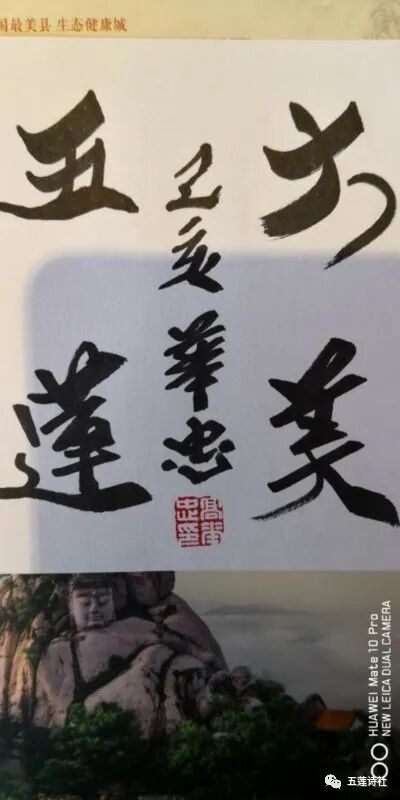 国最美县 生态健康城
大美
五蓮
己亥 華忠
高華忠印
HUAWEI Mate 10 Pro
NEW LEICA DUAL CAMERA
五莲诗社